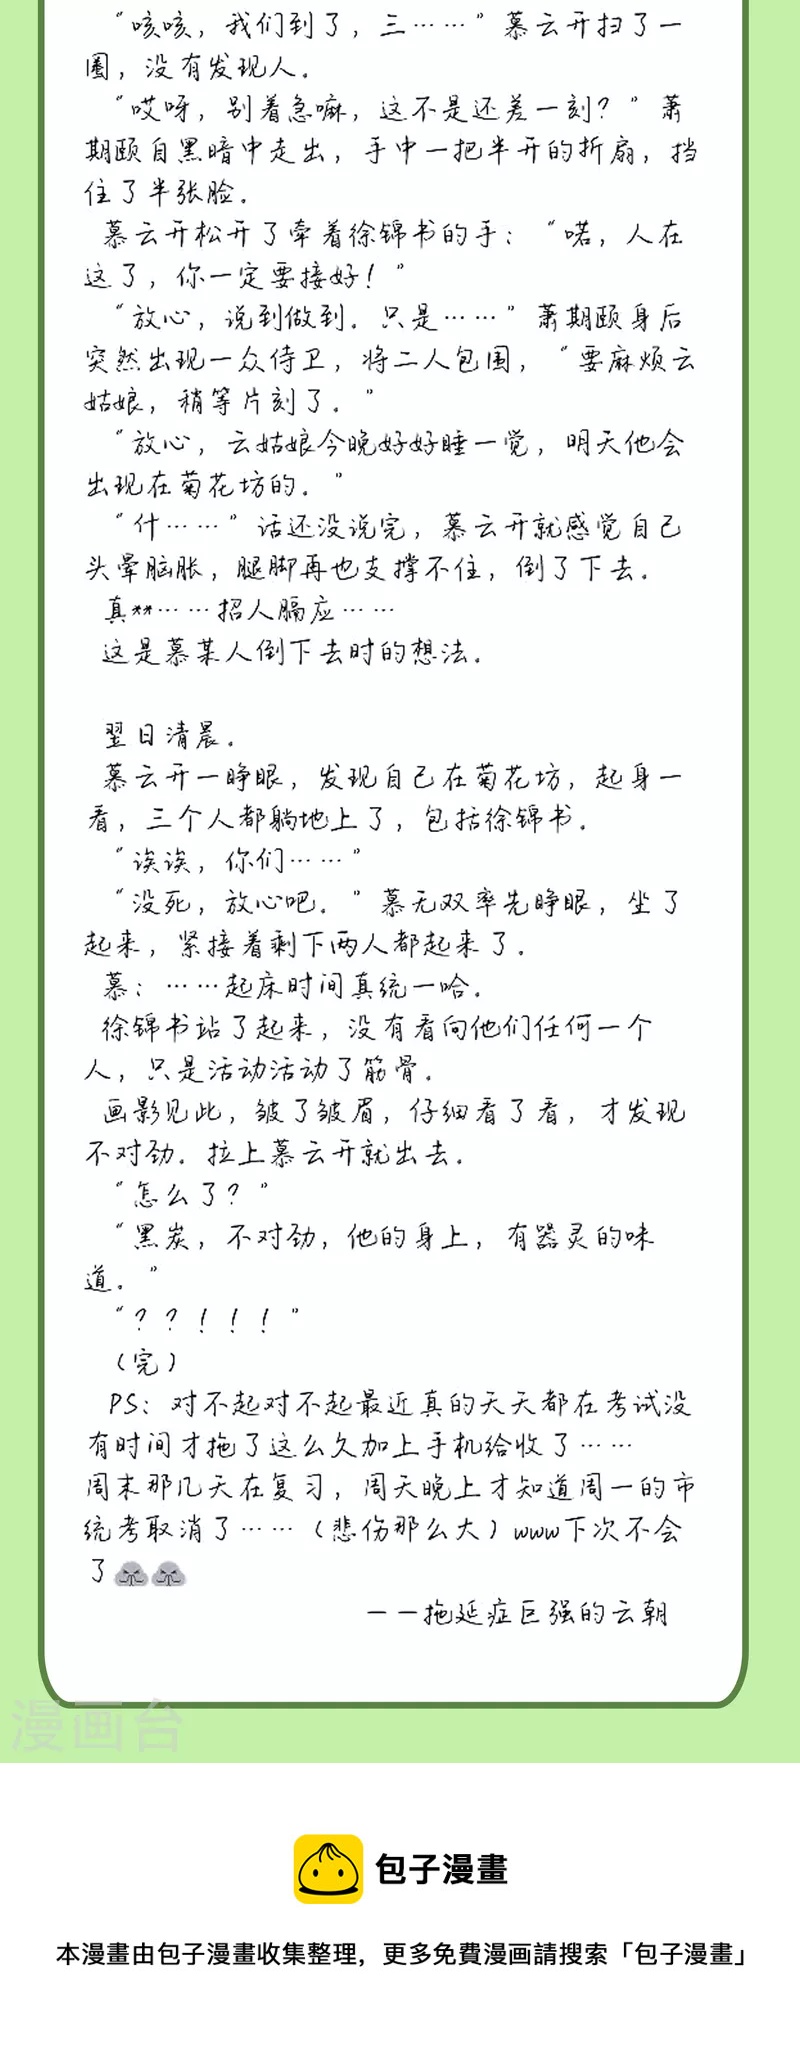 “咳咳，我们到了，三……”慕云开扫了一
圈，没有发现人.
“哎呀，别着急嘛，这不是还差一刻？”萧
期颐自黑暗中走出，手中一把半开的折扇，挡
住了半张脸.
慕云开松开了牵着徐锦书的手：“喏，人在
这了，你一定要接好！”
“放心，说到做到.只是……”萧期颐身后
突然出现一众侍卫，将二人包围，“要麻烦云
姑娘，稍等片刻了.”
“放心，云姑娘今晚好好睡一觉，明天他会
出现在菊花坊的.”
“什……”话还没说完，慕云开就感觉自己
头晕脑胀，腿脚再也支撑不住，倒了下去.
真**……招人膈应……
这是慕某人倒下去时的想法.
翌日清晨.
慕云开一睁眼，发现自己在菊花坊，起身一
看，三个人都躺地上了，包括徐锦书.
“诶诶，你们……”
“没死，放心吧.”慕无双率先睁眼，坐了
起来，紧接着剩下两人都起来了.
慕：……起床时间真统一哈.
徐锦书站了起来，没有看向他们任何一个
人，只是活动活动了筋骨.
画影见此，皱了皱眉，仔细看了看，才发现
不对劲.拉上慕云开就出去.
“怎么了？”
“黑炭，不对劲，他的身上，有器灵的味
道.”
“？？！！！”
（完）
PS：对不起对不起最近真的天天都在考试没
有时间才拖了这么久加上手机给收了……
周末那几天在复习，周天晚上才知道周一的市
统考取消了……（悲伤那么大）www下次不会
了
——拖延症巨强的云朝
漫画台
包子漫畫
本漫畫由包子漫畫收集整理，更多免費漫画請搜索「包子漫畫」